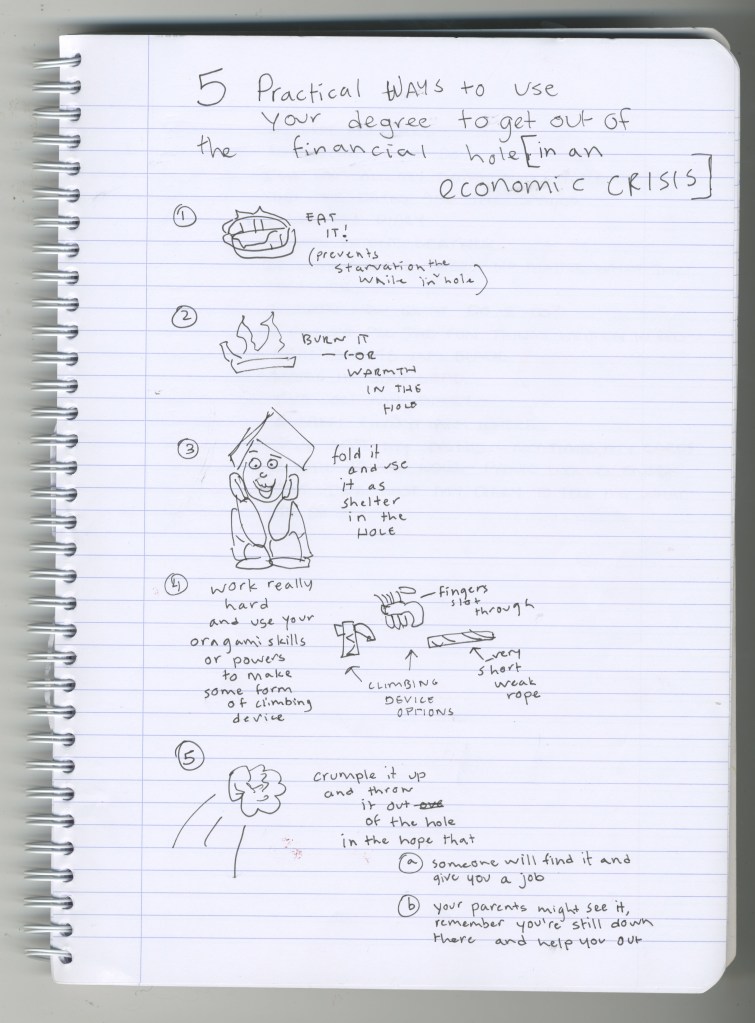 5 Practical WAYS to use
your degree to get out of
the financial hole [in an
economic CRISIS]
1 EAT
IT!
(prevents
starvation the
while in hole)
2 BURN IT
- FOR
WARMTH
IN THE
HOLE
3 fold it
and use
it as
shelter
in the
HOLE
4 work really
hard
and use your
oragami skills
or powers
to make
some form
of climbing
device
fingers
slot
through
very
short
weak
rope
CLIMBING
DEVICE
OPTIONS
5 crumple it up
and throw
it out
of the hole
in the hope that
a someone will find it and
give you a job
b your parents might see it,
remember you're still down
there and help you out